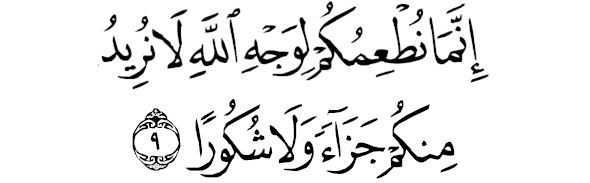 إِنَّمَا نُطْعِمُكُمْ لِوَجْهِ ٱللَّهِ لَا نُرِيدُ
مِنكُمْ جَزَآءً وَلَا شُكُورًا ٩